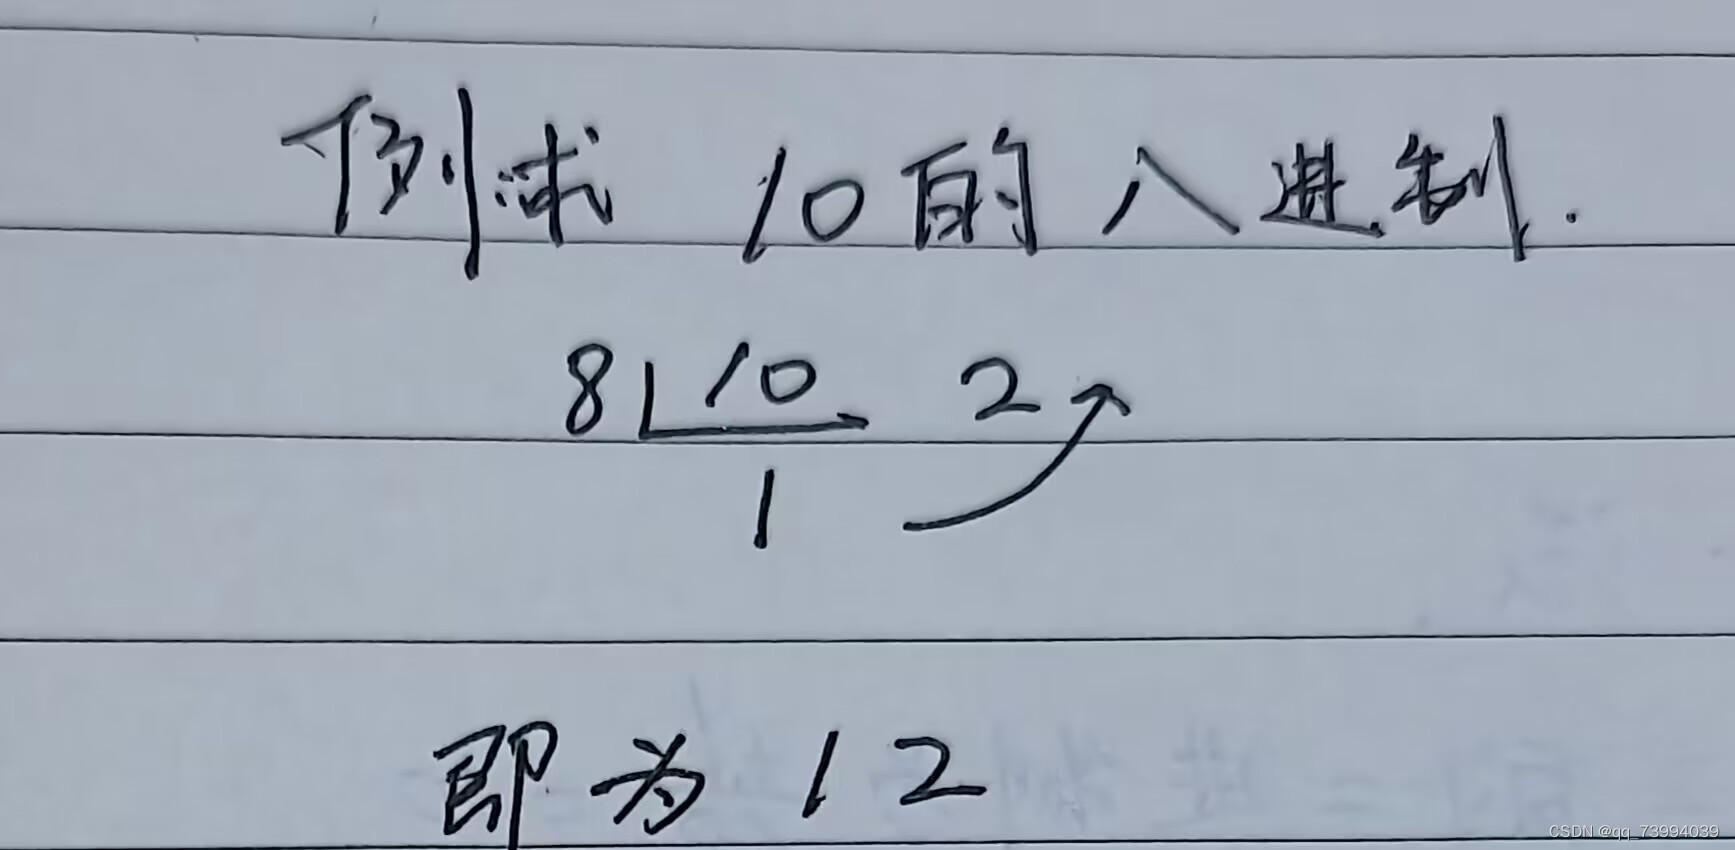 例求 10的八进制.
8 10 2
1
即为 12
CSDN @qq_73994039